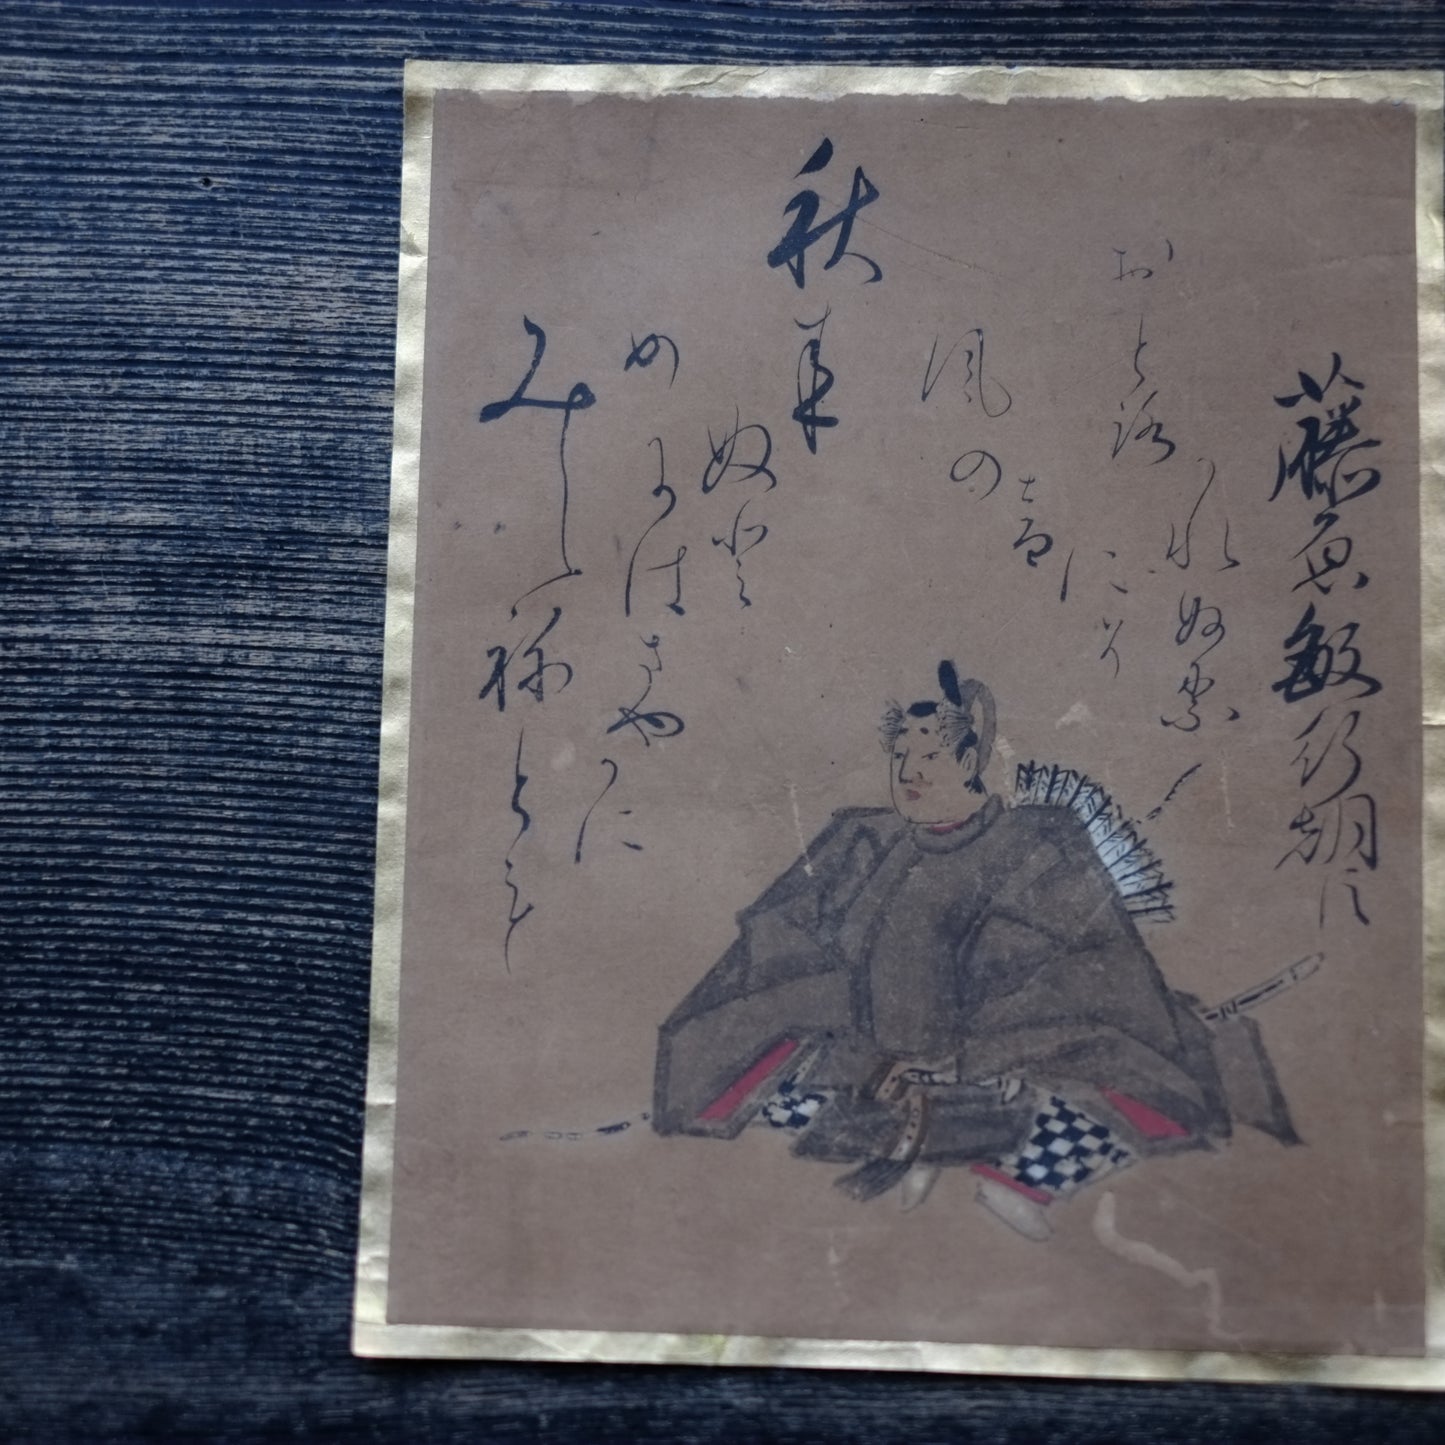 藤原敏行朝臣
秋来
ぬと
めにはさやかに
みえねとも
風の
音
にそ
おとろ
かれぬる